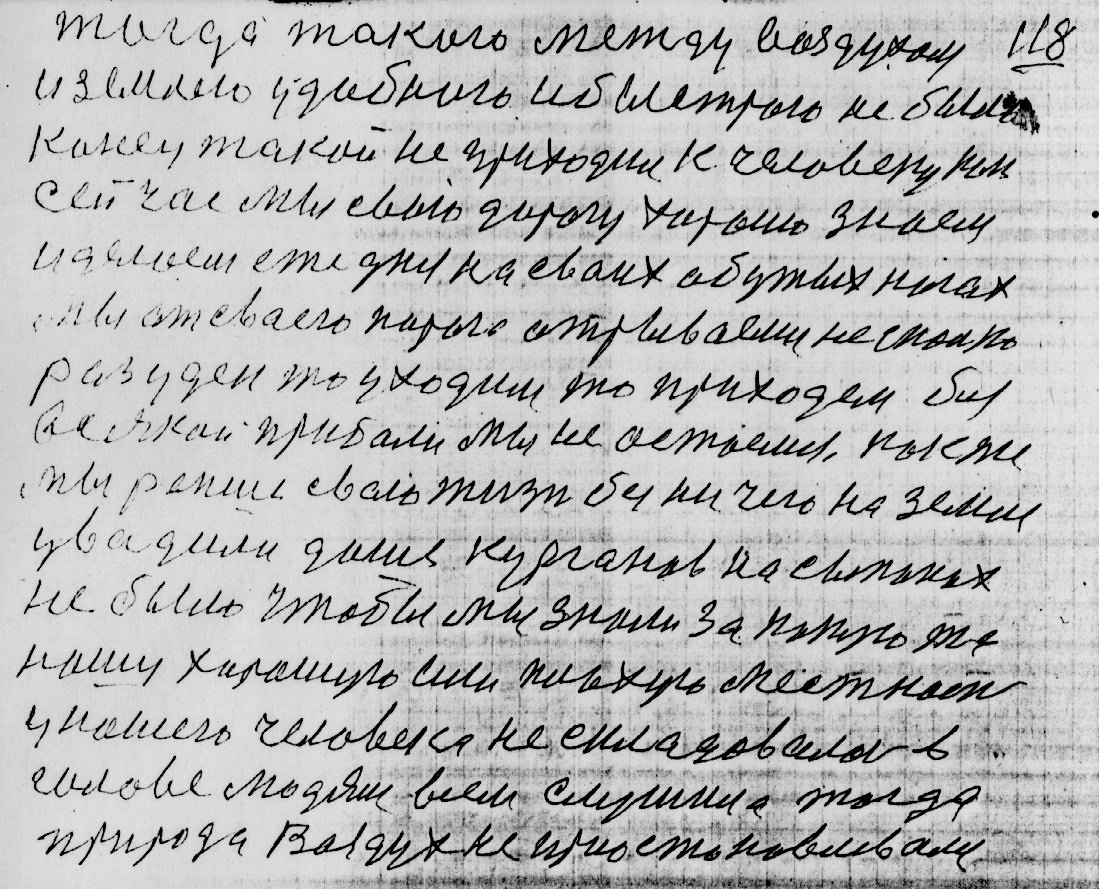 тогда такого между воздухом 118
и землею удобного и быстрого не было
конец такой не приходил к человеку как
сейчас мы свою дорогу хорошо знаем
и делаем ежедня на своих обутых ногах
мы от сваего порога отрываеми несколко
раз у ден то уходим то приходем биз
всякой прибали мы не остаемся, как же
мы ранше свою жизн биз ничего на земли
увадили даже курганов на сыпоных
не было чтобы мы знали за какую то
нашу харошую или плохую местност
у нашего человека не складовалос в
голове людям всем слушила тогда
природа Воздух не приостоновлевали